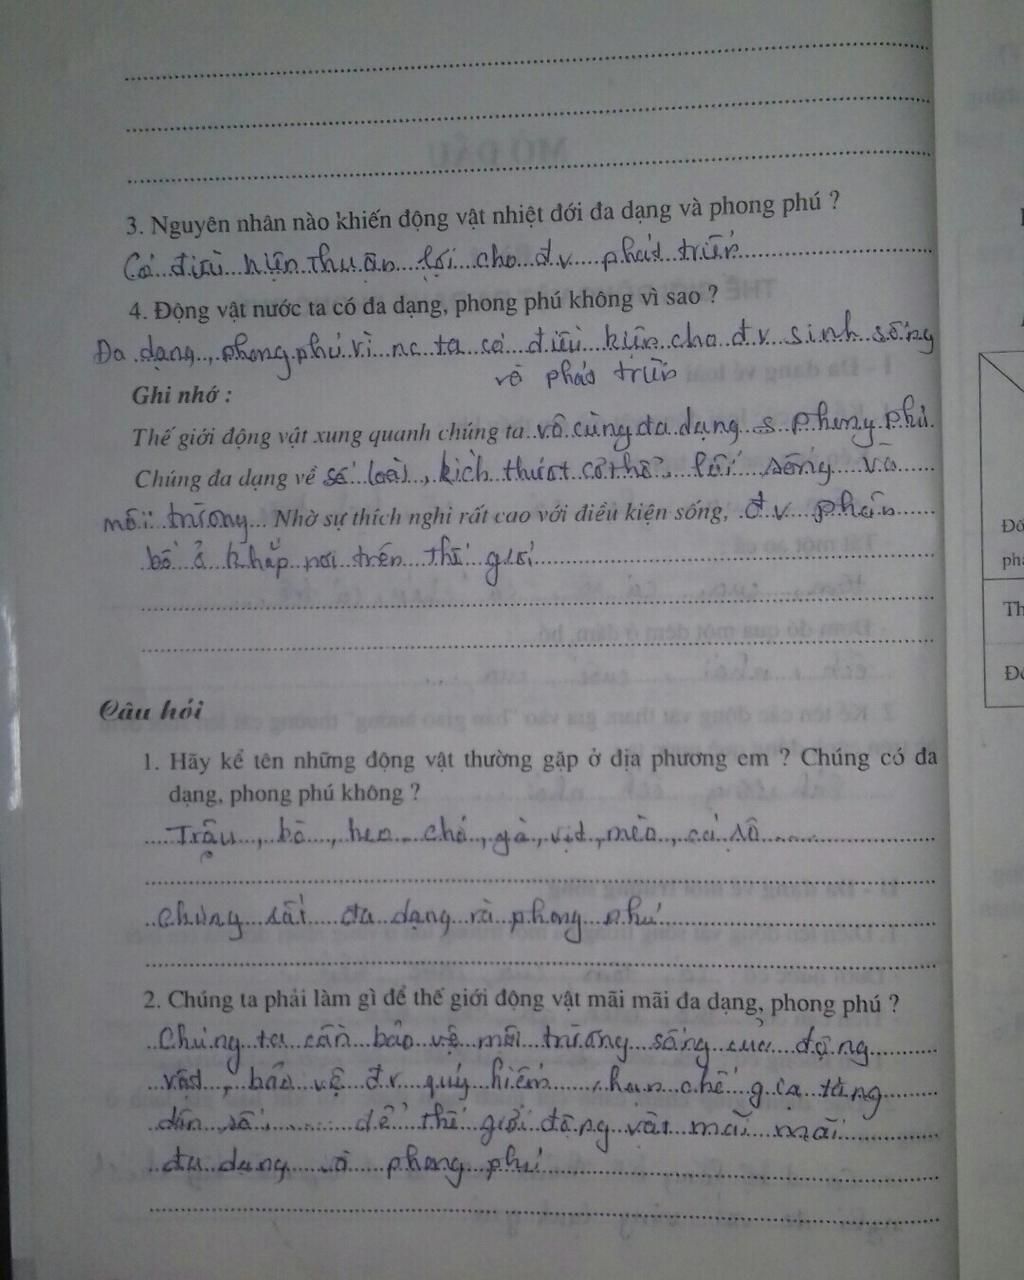 3. Nguyên nhân nào khiến động vật nhiệt đới đa dạng và phong phú ?
Có điều kiện thuận lợi cho đv phát triển
4. Động vật nước ta có đa dạng, phong phú không vì sao ?
Đa dạng, phong phú vì nc ta có điều kiện cho đv sinh sống
và phát triển
Ghi nhớ :
Thế giới động vật xung quanh chúng ta vô cùng đa dạng phong phú.
Chúng đa dạng về số loài, kích thướt cơ thể, lối sống và
môi trường Nhờ sự thích nghi rất cao với điều kiện sống, đv phân
bố ở khắp nơi trên thế giới
Câu hỏi
1. Hãy kể tên những động vật thường gặp ở địa phương em ? Chúng có đa
dạng, phong phú không ?
Trâu, bò, heo, chó, gà, vịt, mèo, cá
Chúng rất đa dạng và phong phú
2. Chúng ta phải làm gì để thế giới động vật mãi mãi đa dạng, phong phú ?
Chúng ta cần bảo vệ môi trường sống của động
vật, bảo vệ đv quý hiếm, hạn chế gia tăng
dân số để thế giới động vật mãi mãi
đa dạng và phong phú
Đó
phá
Th